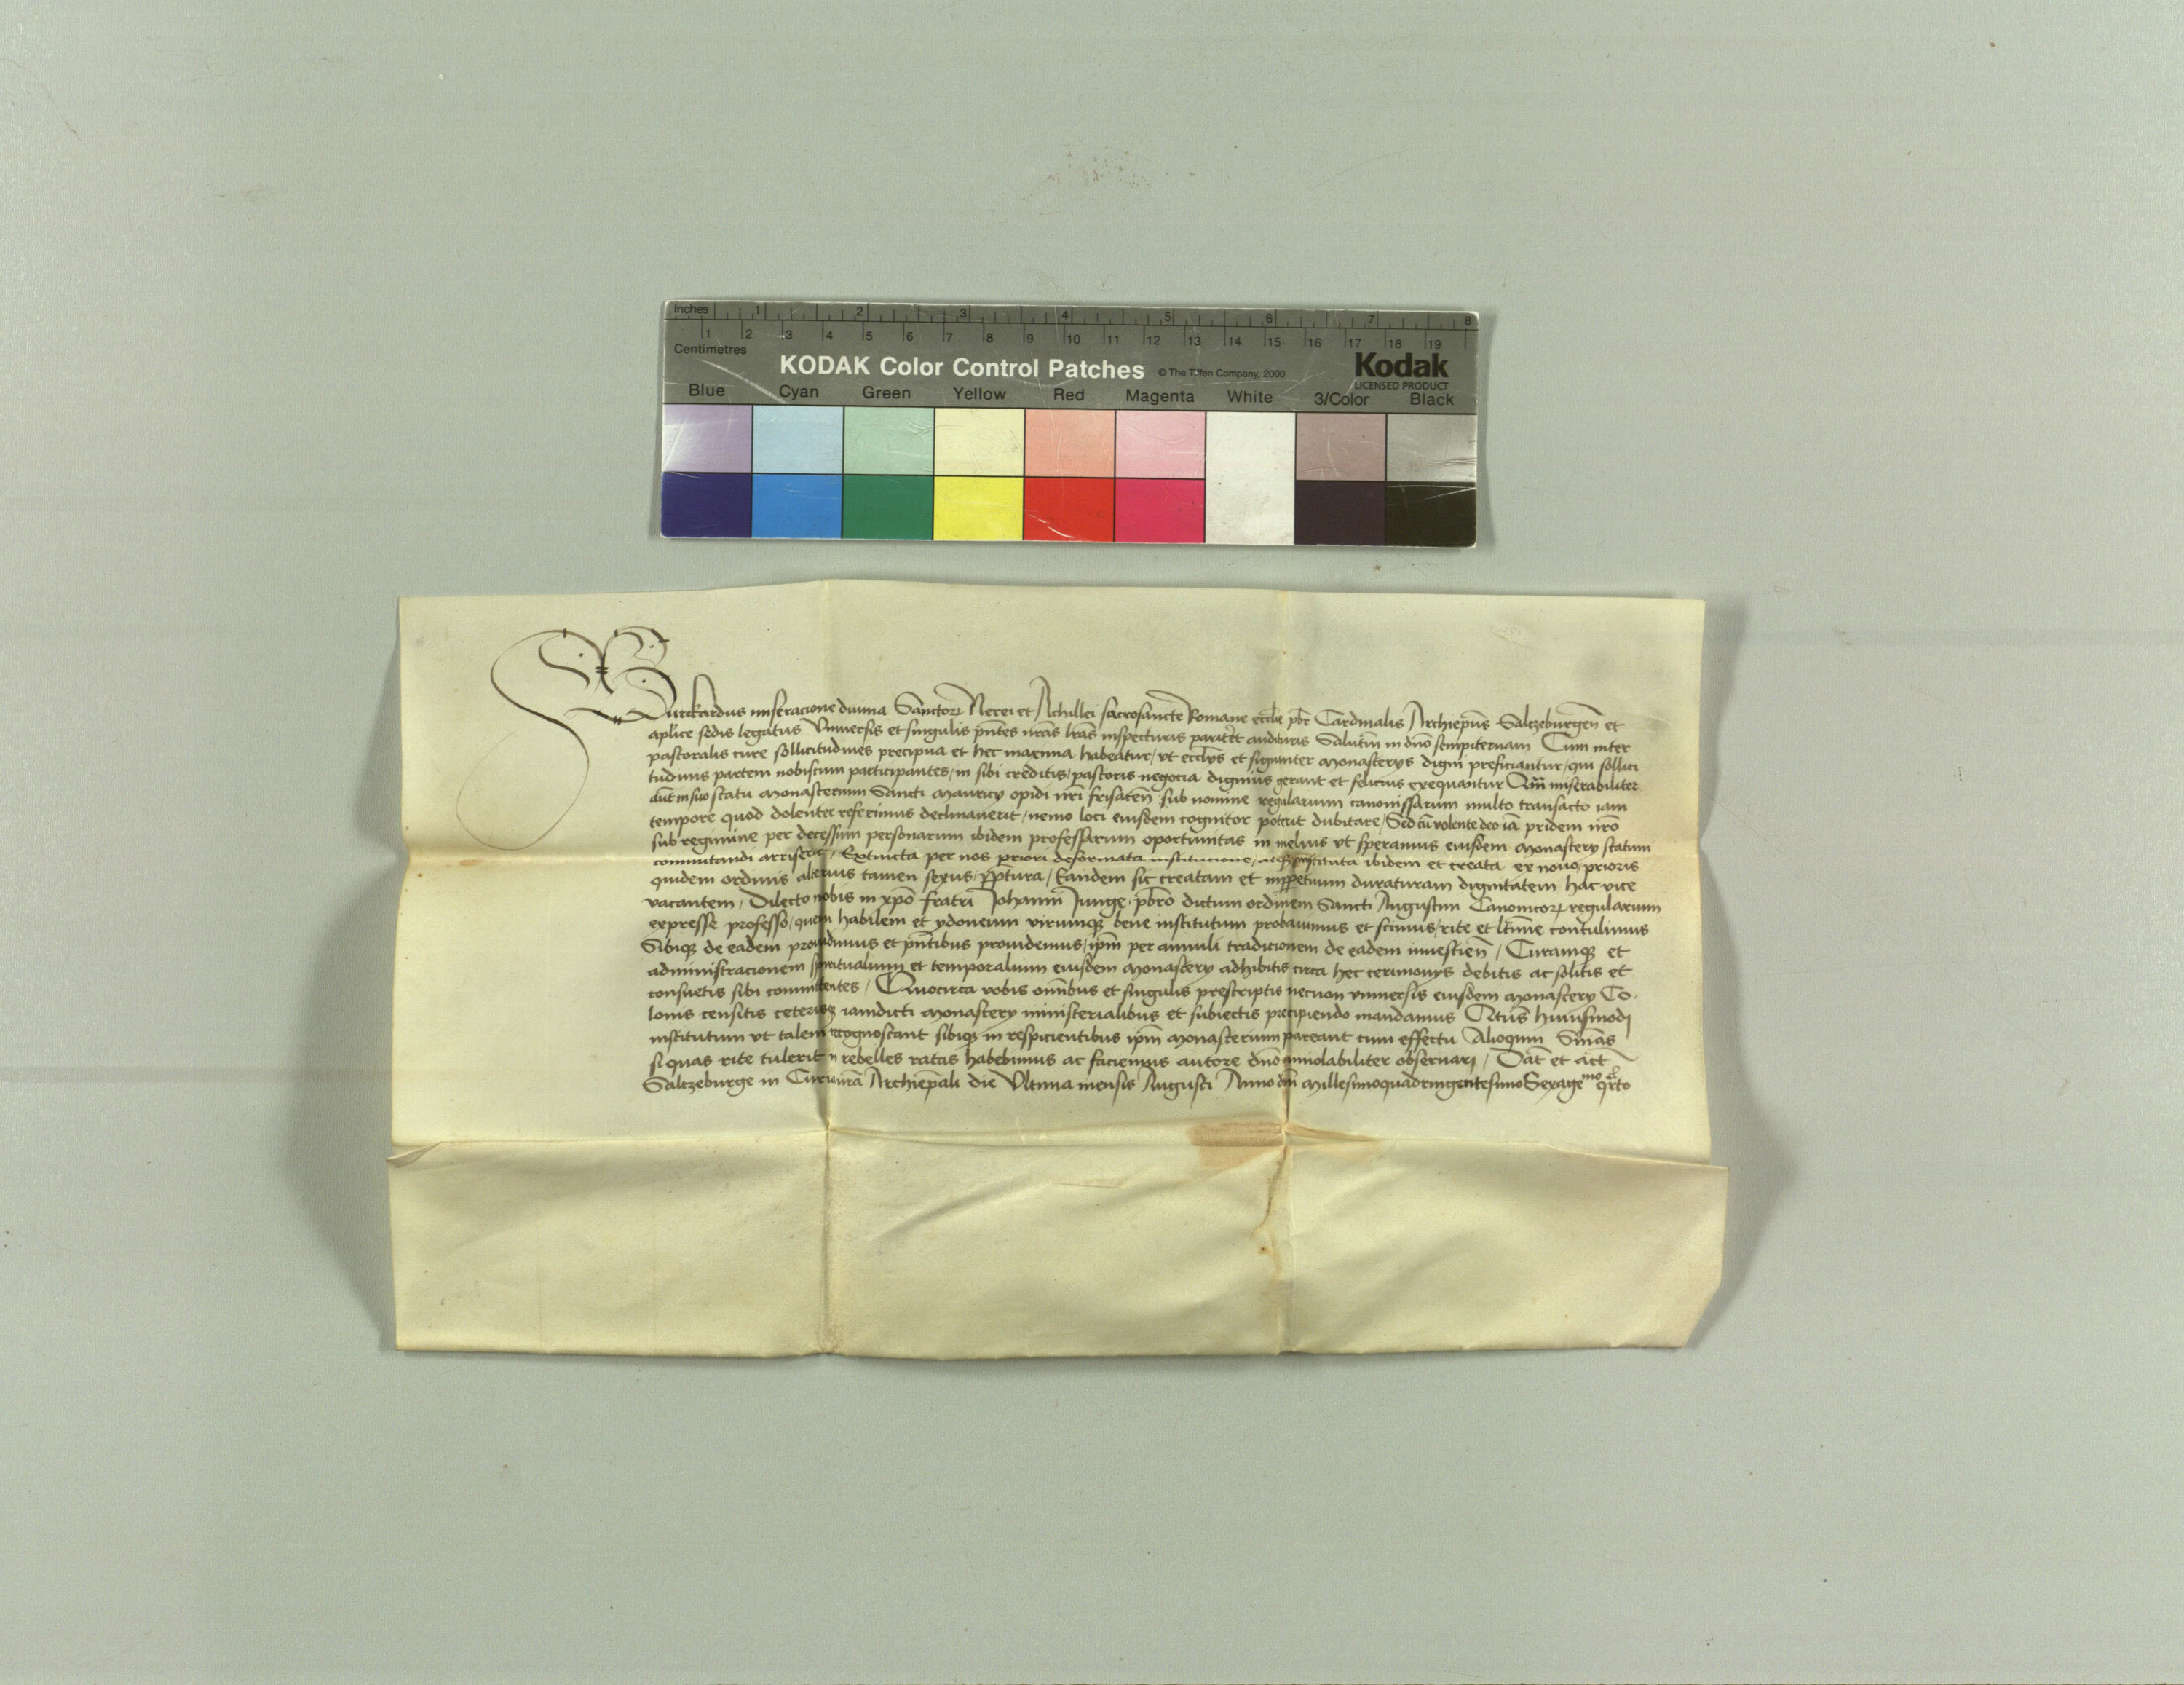 Inches 1 2 3 4 5 6 7 8
1 2 3 4 5 6 7 8 9 10 11 12 13 14 15 16 17 18 19
Centimetres
KODAK Color Control Patches © The Tiffen Company, 2000 Kodak
LICENSED PRODUCT
Blue Cyan Green Yellow Red Magenta White 3/Color Black
Burckardus miseracione diuina Sanctoꝝ Nerei et Achillei sacrosancte Romane eccl̄ie pb̄r Cardinalis Archiep̄us Saltzeburgen̄ et
aplīce sedis legatus Vniuersis et singulis pn̄tes nr̄as lr̄as inspecturis pariter audituris Salutem̄ in dn̄o sempiternam Cum inter
pastoralis cure sollicitudines precipua et hec maxima habeatur / vt eccl̄ijs et signanter monasterijs digni preficiantur / qui sollici
tudinis partem nobiscum participantes / in sibi creditis / pastoris negocia dignius gerant et felicius exequantur Qm̄ miserabiliter
aut̄ in suo statu monasterium Sancti Mauricij opidi nr̄i frisacen̄ sub nomine regularium canonissarum multo transacto iam
tempore quod dolenter referimus declinauerit / nemo loci eiusdem cognitor poterit dubitare / Sed cū volente deo iā pridem nr̄o
sub regimine per decessum personarum ibidem professarum oportunitas in melius vt speramus eiusdem monasterij statum
commutandi arriserit / Extincta per nos priori deformata institucione / atqꝫ instituta ibidem et creata ex nouo / prioris
quidem ordinis alterius tamen sexus / pp̄tura / Eandem sic creatam et imppetuum duraturam dignitatem hac vice
vacantem / Dilecto nobis in xpō fratri Johanni Junge / pbr̄o dictum ordinem Sancti Augustini Canonicoꝝ regularium
expresse professo / quem habilem et ydoneum virumqꝫ bene institutum probauimus et scimus / rite et ltīme contulimus
Sibiqꝫ de eadem prouidimus et pn̄tibus prouidemus / ipm̄ per annuli tradicionem de eadem inuestien̄ / Curamqꝫ et
administracionem spiritualium et temporalium eiusdem monasterij adhibitis circa hec cerimonijs debitis ac solitis et
consuetis sibi committentes / Quocirca vobis om̄ibus et singulis prescriptis necnon vniuersis eiusdem monasterij Co-
lonis censitis ceterisqꝫ iamdicti monasterij ministerialibus et subiectis precipiendo mandamus Qtus̄ huiusmodi
institutum vt talem recognoscant sibiqꝫ in respicientibus ipm̄ monasterium pareant cum effectu Alioquin Sn̄ias
si quas rite tulerit in rebelles ratas habebimus ac faciemus autore dn̄o inuiolabiliter obseruari / Dat̄ et act̄
Saltzeburge in Curia nr̄a Archiep̄ali die Vltima mensis Augusti Anno dn̄i Millesimoquadringentesimo Sexagemo qr̄to